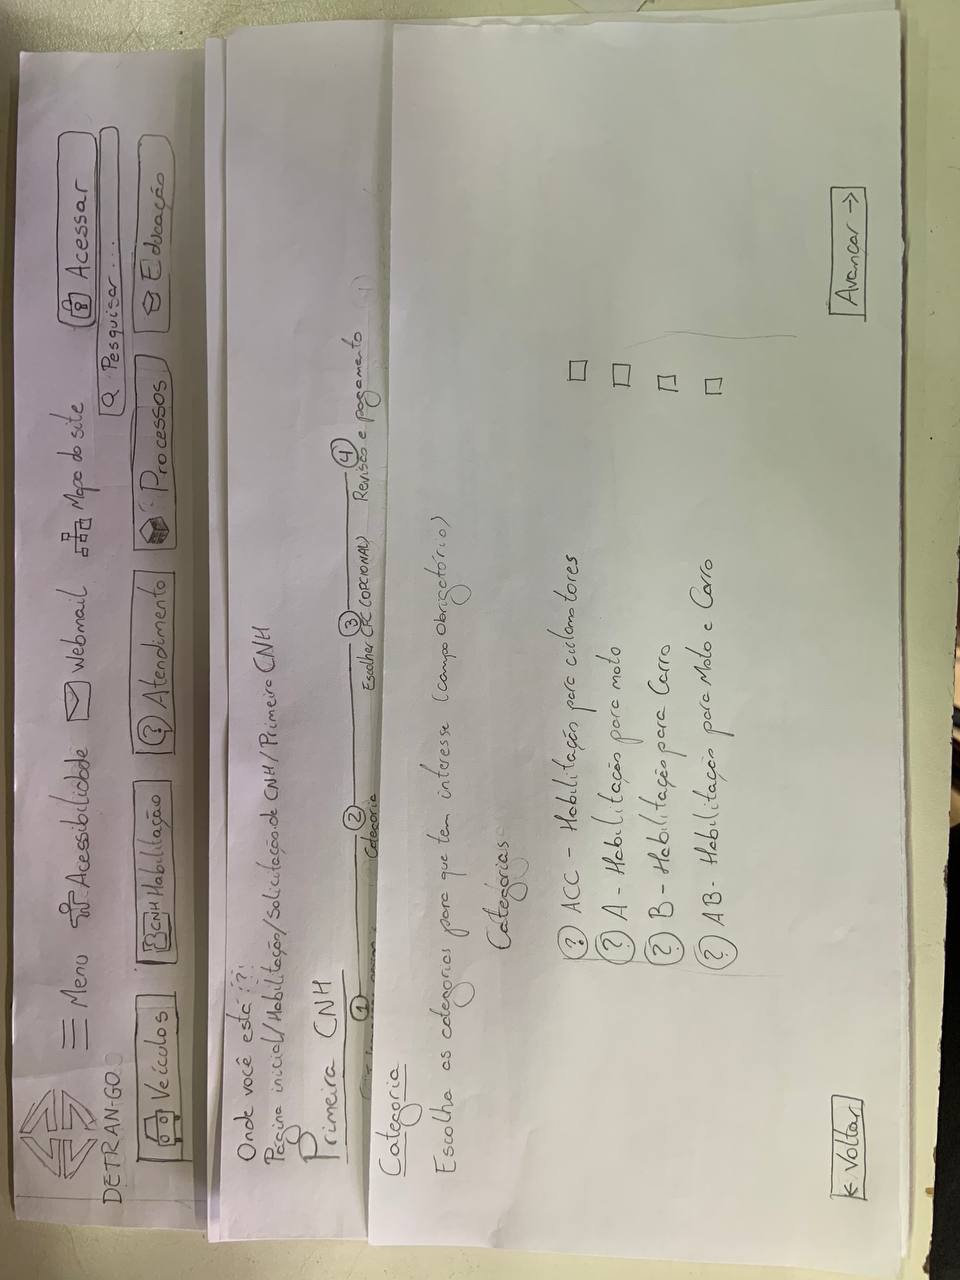 Menu Acessibilidade Webmail Mapa do site Acessar
DETRAN-GO
Pesquisar ...
Veículos CNH Habilitação ? Atendimento Processos Educação
Onde você está ?!
Página inicial/Habilitação/Solicitação de CNH/Primeira CNH
Primeira CNH
1 2 3 4
Categoria Escolher CFC (OPCIONAL) Revisão e pagamento
Categoria
Escolha as categorias para que tem interesse (campo obrigatório)
Categorias
? ACC - Habilitação para ciclomotores
? A - Habilitação para moto
? B - Habilitação para Carro
? AB - Habilitação para Moto e Carro
← Voltar Avançar →